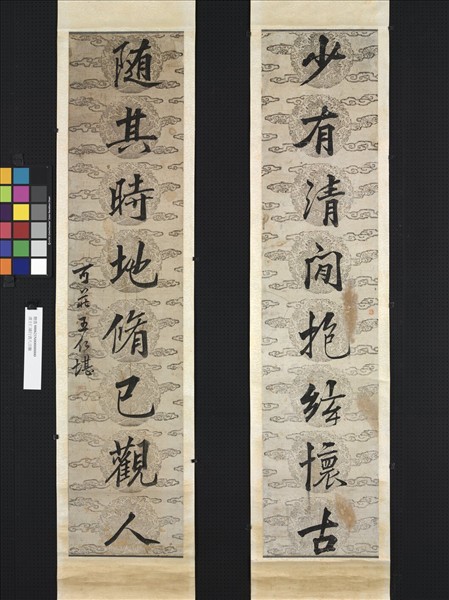 少有清閒抱絃懷古
随其時地脩己觀人
可莊王仁堪